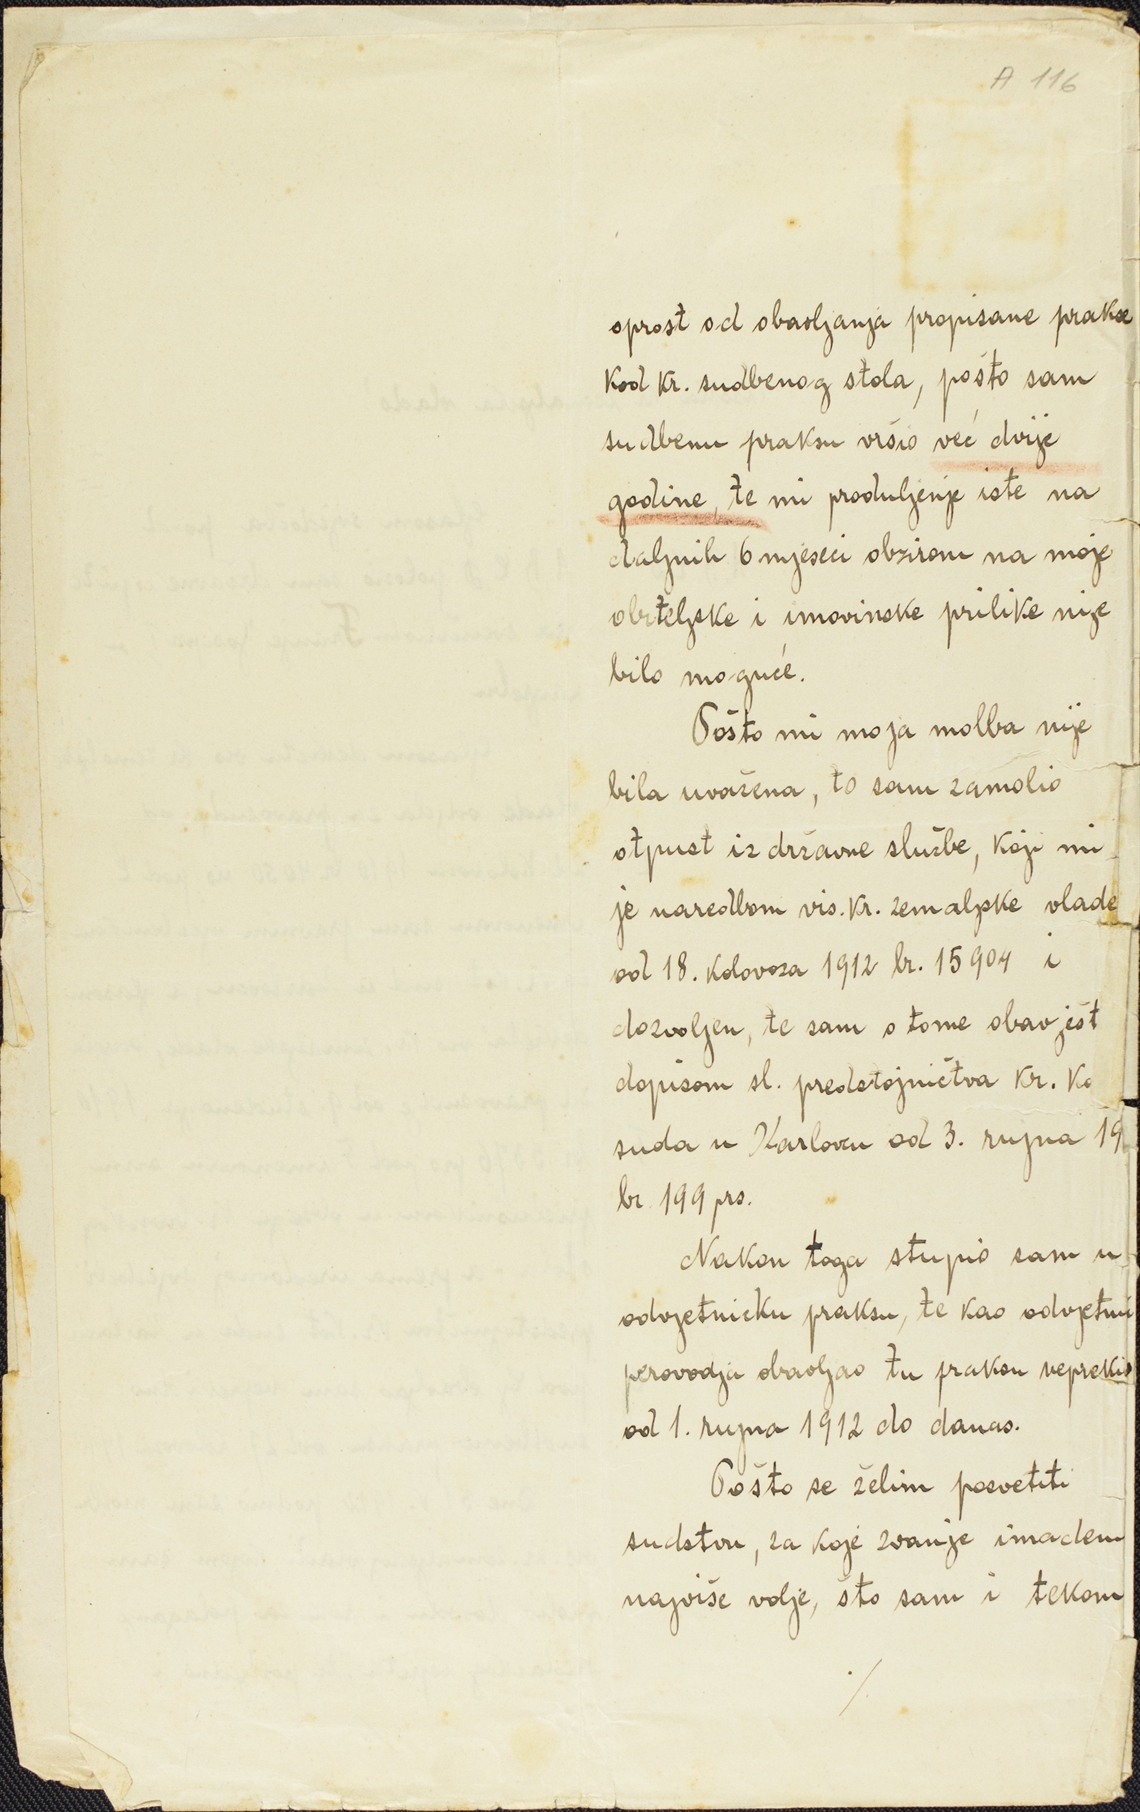 A 116
oprost od obavljanja propisane prakse
kod kr. sudbenog stola, pošto sam
sudbenu praksu vršio već dvije
godine, te mi produljenje iste na
daljnih 6 mjeseci obzirom na moje
obiteljske i imovinske prilike nije
bilo moguće.
Pošto mi moja molba nije
bila uvažena, to sam zamolio
otpust iz državne službe, koji mi
je naredbom vis. kr. zemaljske vlade
od 18. kolovoza 1912 br. 15904 i
dozvoljen, te sam o tome obavješt
dopisom sl. predstojničtva kr. ko
suda u Karlovcu od 3. rujna 19
br. 199 prs.
Nakon toga stupio sam u
odvjetničku praksu, te kao odvjetni
perovodja obavljao tu praksu neprekid
od 1. rujna 1912 do danas.
Pošto se želim posvetiti
sudstvu, za koje zvanje imadem
najviše volje, što sam i tekom
./.